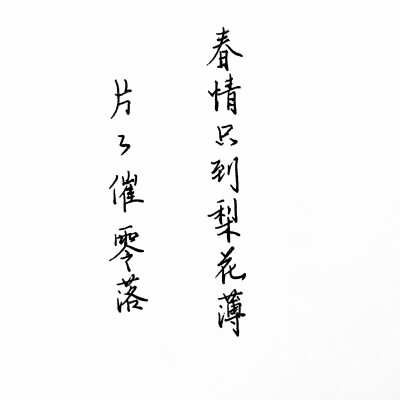 春情只到梨花薄
片々催零落